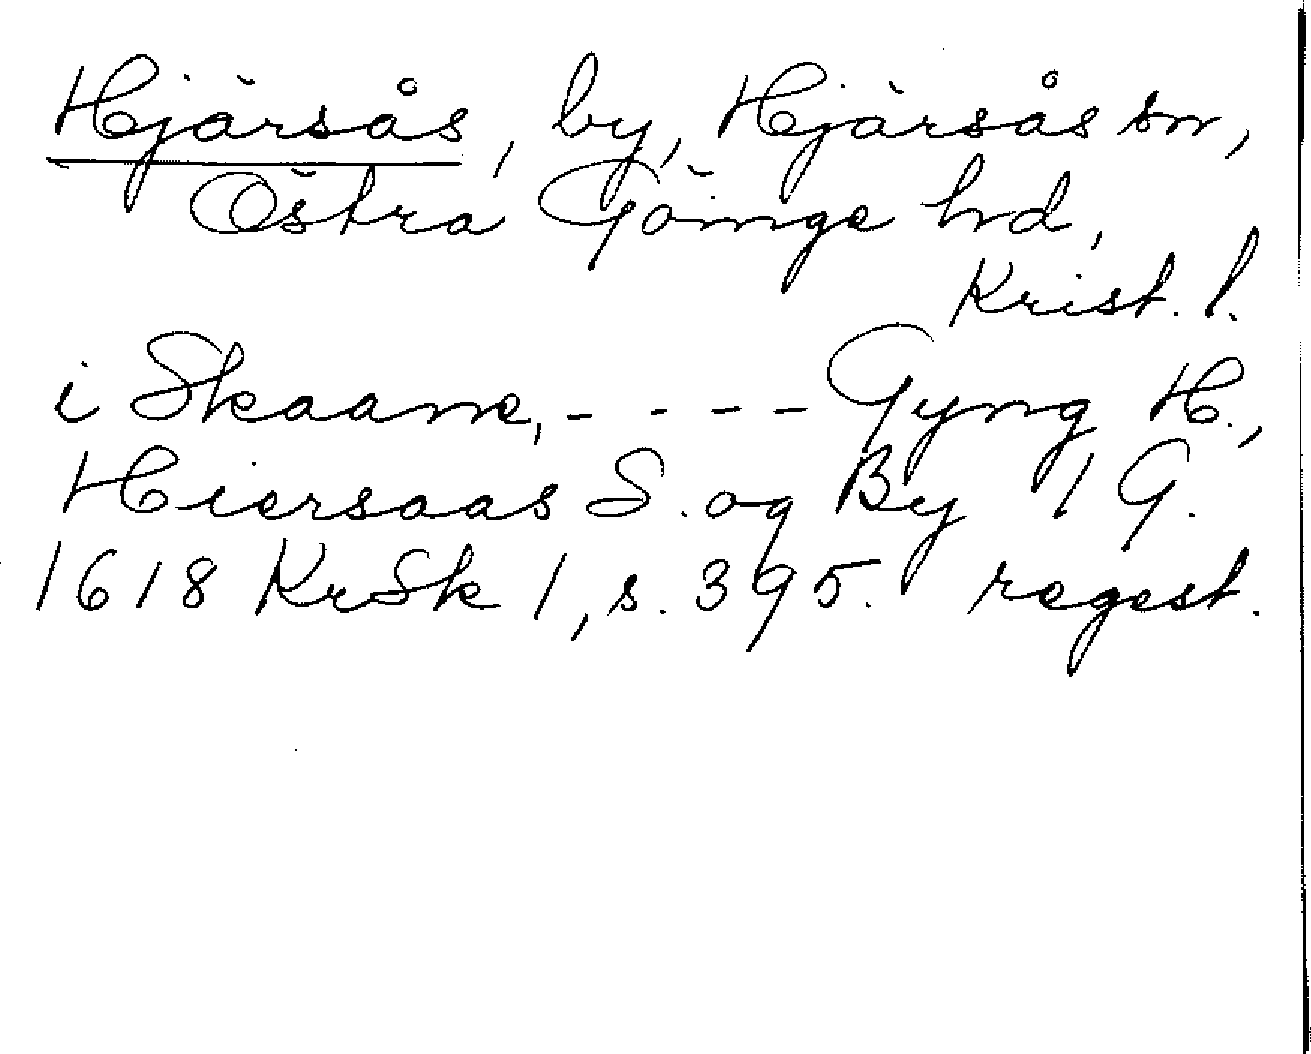 Hjärsås, by, Hjärsås sn,
Östra Göinge hd,
Krist. l.
i Skaane, - - - - Gyng H.,
Hiersaas S. og By 1 G.
1618 KrSk 1, s. 395. regest.